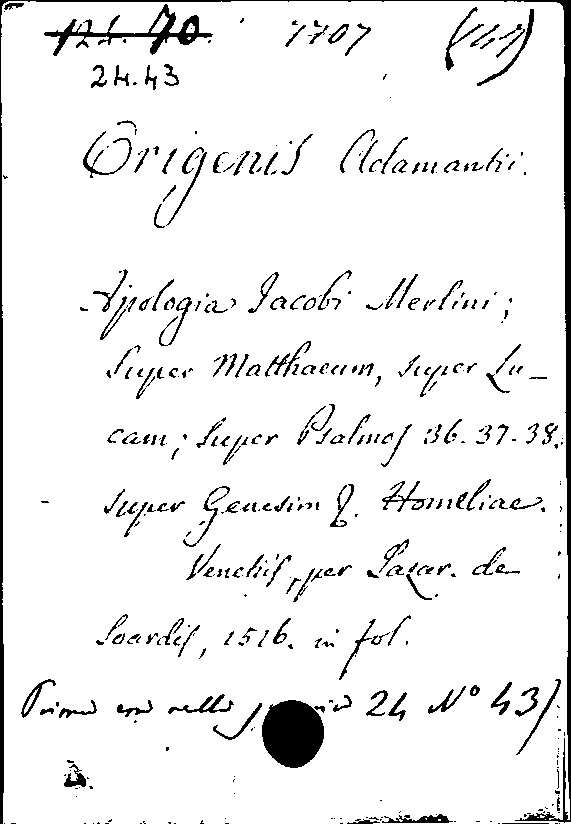 124. 70. 1707
24.43
Origenis Adamantii.
Apologia Jacobi Merlini;
super Matthaeum, super Lu-
cam; super Psalmos 36. 37. 38.
super Genesim &. Homeliae.
Venetiis, per Lazar. de
Soardis, 1516. in fol.
Prima era nella 24 N° 43)